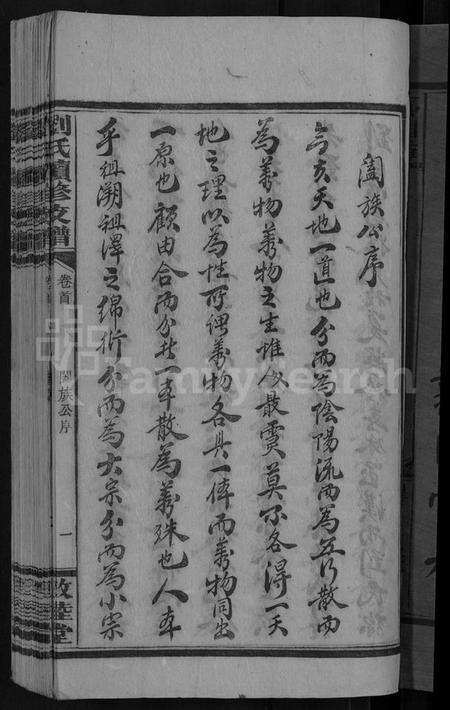 闔族公序
言夫天地一道也分而為陰陽流而為五行散而
為萬物萬物之生雖似散賣莫不各得一天
地之理以為性所謂萬物各具一體而萬物同出
一原也顧由合而分廿一本散為萬殊也人本
乎祖溯祖澤之綿衍分而為大宗分而為小宗
劉氏續修支譜
卷首
闔族公序
一
敦睦堂
FamilySearch